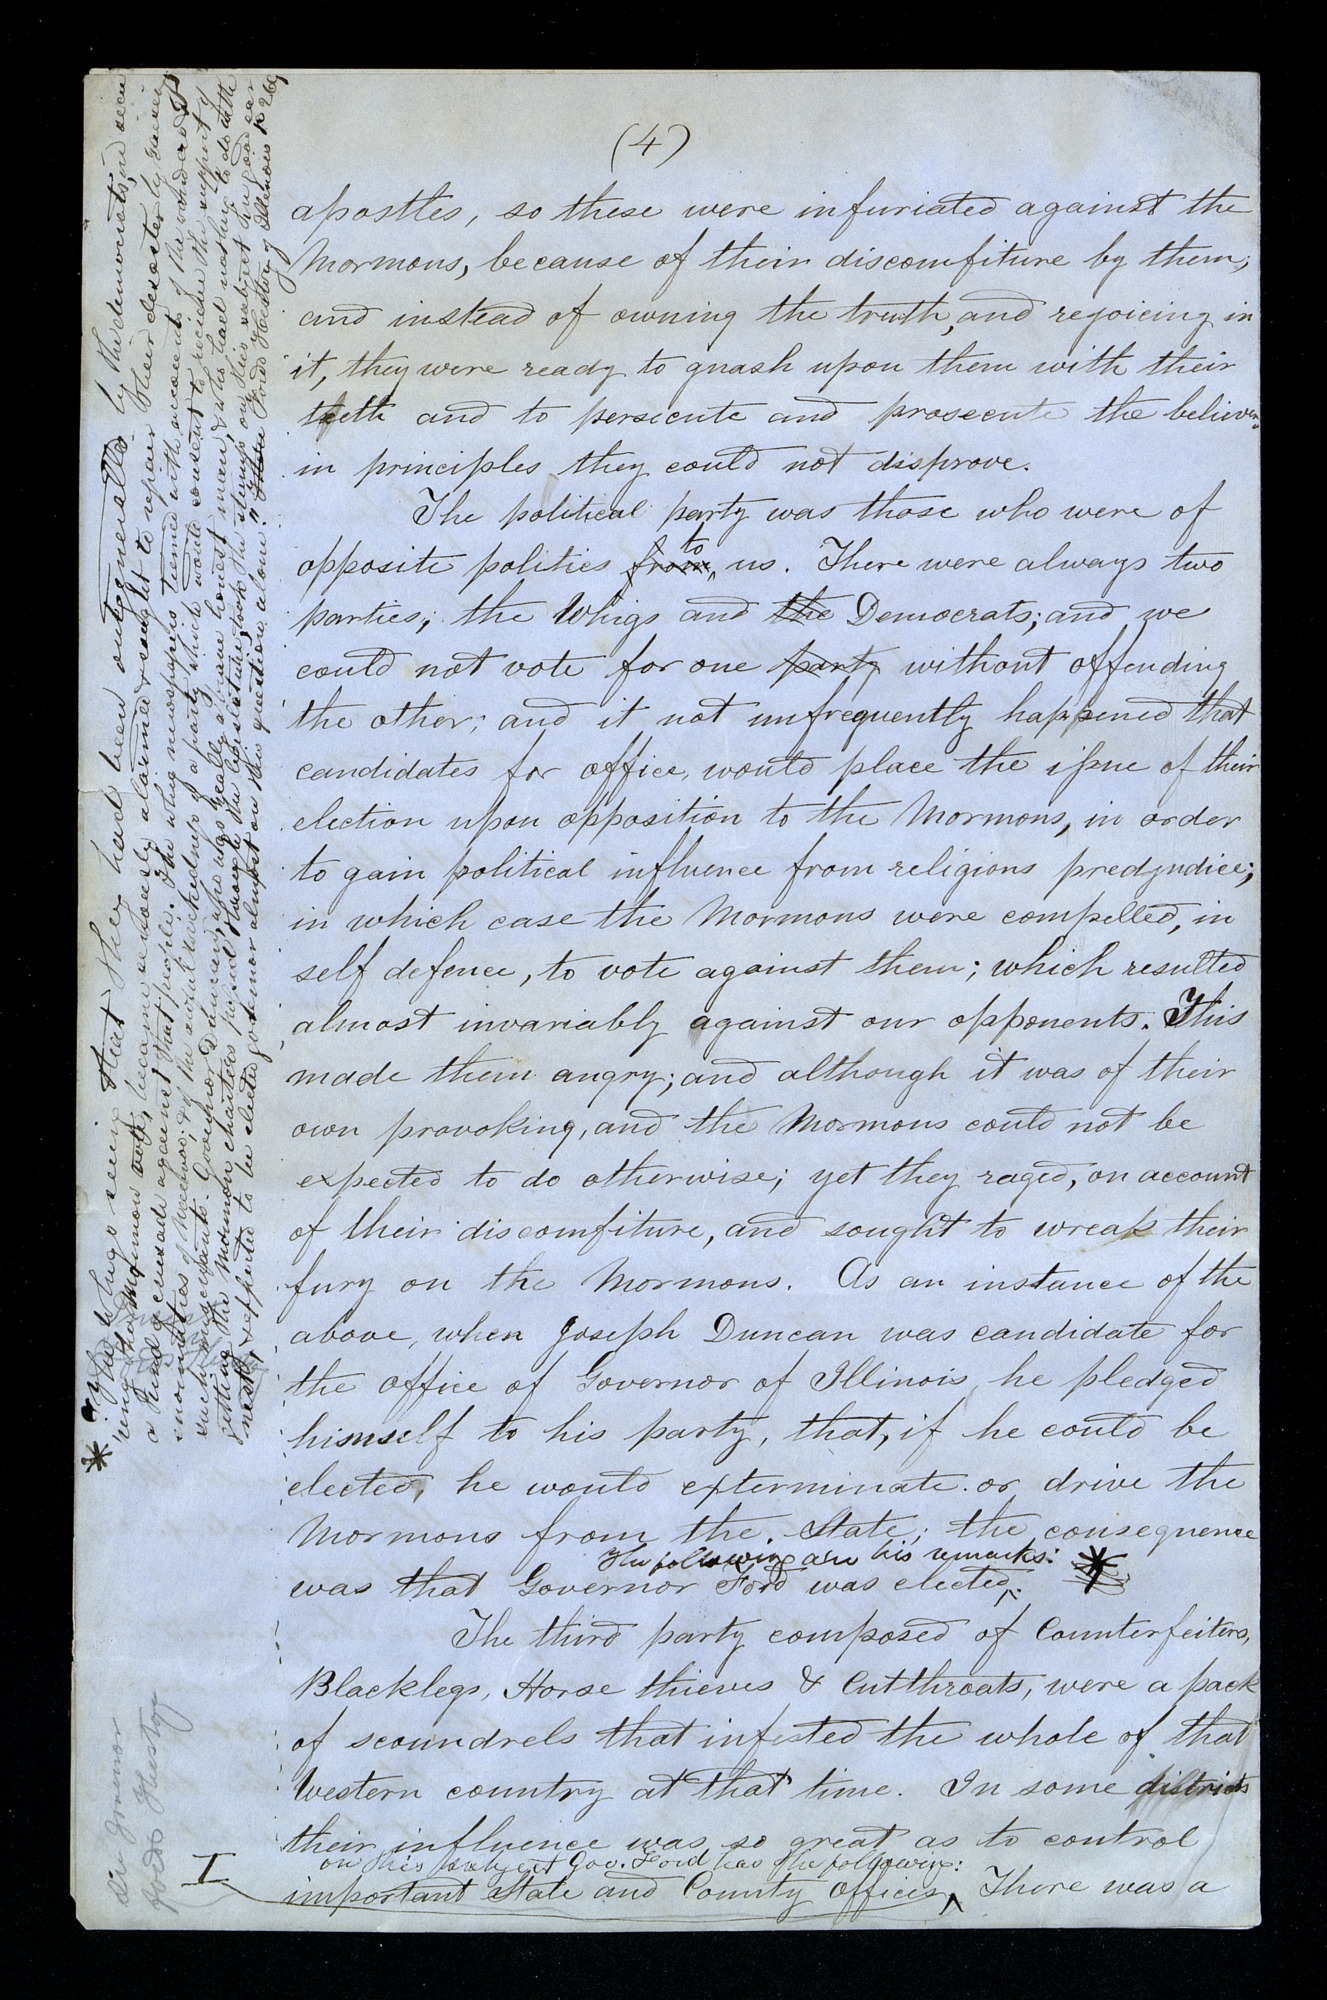 (4)
apostles, so these were infuriated against the
Mormons, because of their discomfiture by them;
and instead of owning the truth, and rejoicing in
it, they were ready to gnash upon them with their
teeth and to persecute and prosecute the believers
in principles they could not disprove.
The political party was those who were of
opposite politics from to us. There were always two
parties; the Whigs and the Democrats; and we
could not vote for one party without offending
the other; and it not unfrequently happened that
candidates for office, would place the issue of their
election upon opposition to the Mormons, in order
to gain political influence from religious predjudice;
in which case the Mormons were compelled, in
self defence, to vote against them; which resulted
almost invariably against our opponents. This
made them angry; and although it was of their
own provoking, and the Mormons could not be
expected to do otherwise; yet they raged, on account
of their discomfiture, and sought to wreak their
fury on the Mormons. As an instance of the
above, when Joseph Duncan was candidate for
the office of Governor of Illinois, he pledged
himself to his party, that, if he could be
elected, he would exterminate or drive the
Mormons from the State; the consequence
The following are his remarks: *
was that Governor Ford was elected.
The third party composed of Counterfeiters,
Blacklegs, Horse thieves & Cutthroats, were a pack
of scoundrels that infested the whole of that
Western country at that time. In some districts
their influence was so great as to control
on this subject Gov. Ford has the following:
I important State and County offices, There was a
* "The whigs seeing that they had been outgeneralled by the democrats in secu
ring the Mormon vote, became seriously alarmed & sought to repair their disaster by raising
a kind of crusade against that people. The whig newspapers teemed with accounts of the wonders &
enormities of Nauvoo, & of the awful wickedness of a party which would consent to receive the support of
such miscreants. Governor Duncan, who was really a brave honest man, & who had nothing to do with
getting the Mormon charters passed through the Legislature, took the stump on this subject in good ear
nest, & expected to be elected governor almost on this question alone." Fords History of Illinois P 269
Governor
Fords History